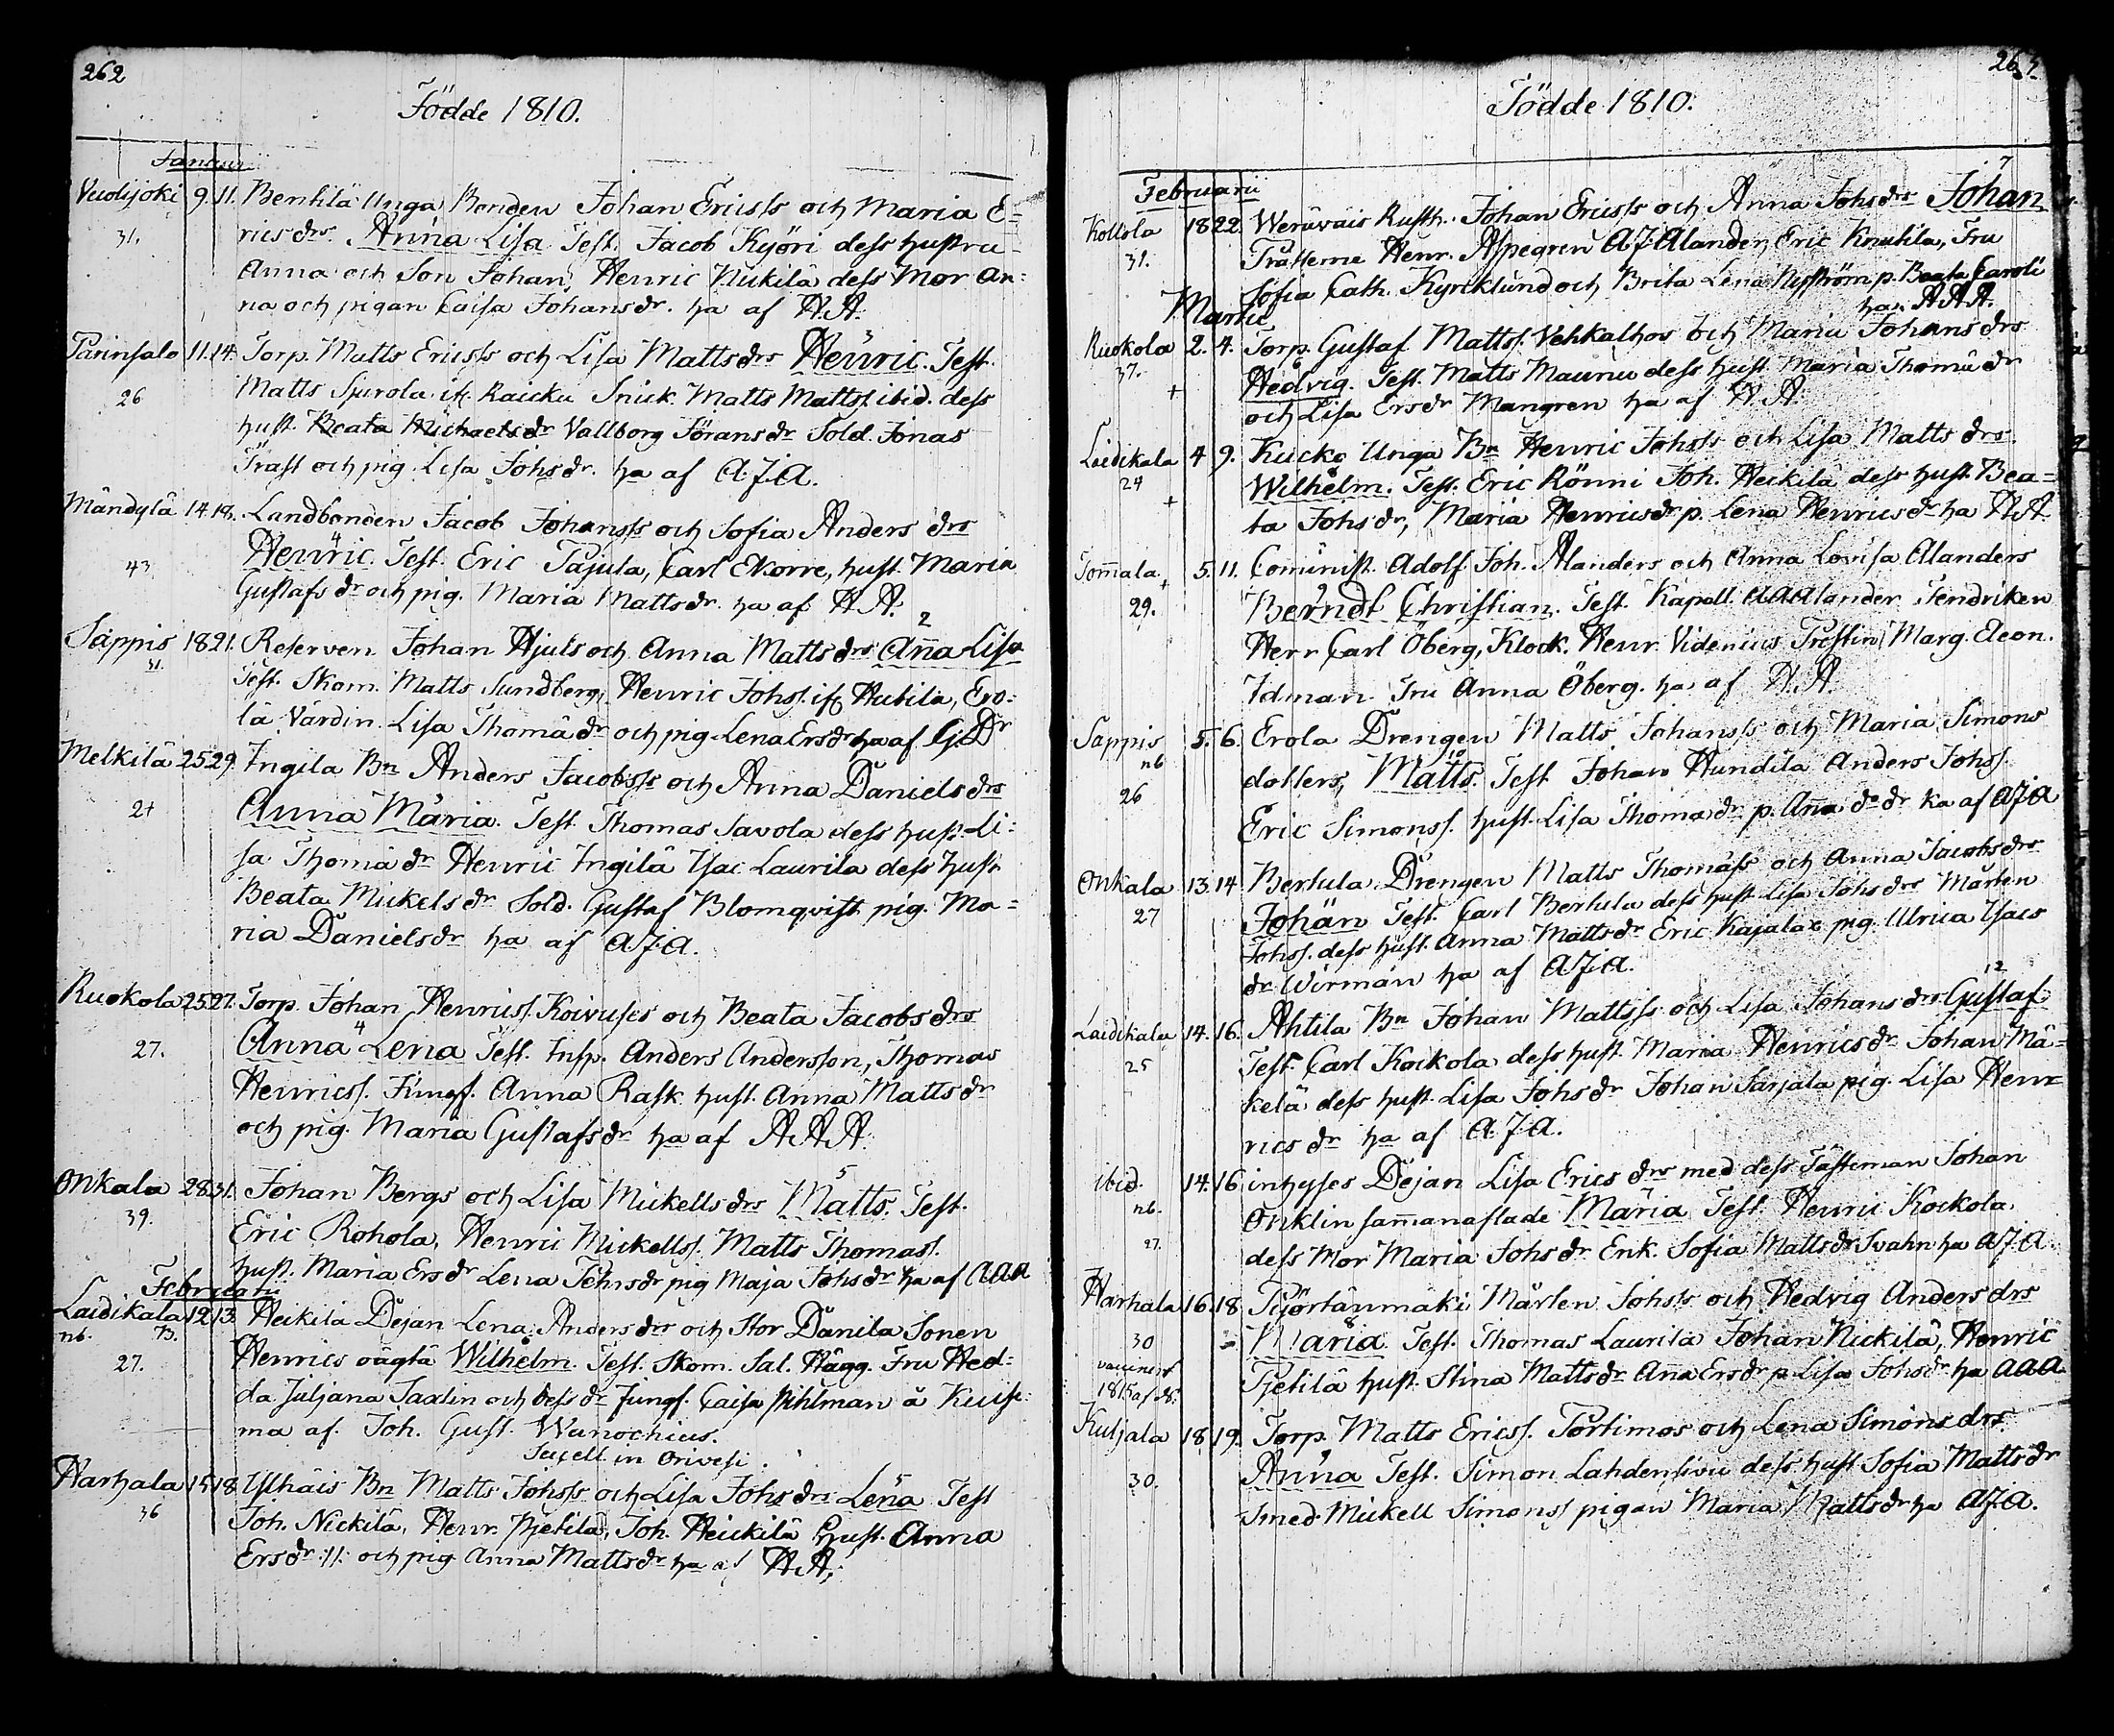 262
Födde 1810.
Januarii
Vuolijoki 9. 11. Benlilä Unga Bonden Johan Ericss och Maria E=
31. rics drs Anna Lisa Test. Jacob Kyöri dess hustru
Anna och Son Johan, Henric Nickilä dess Mor An=
na och pigan Caisa Johans dr. ha af H A.
Parinsalo 11. 14. Torp. Matts Ericss och Lisa Matts drs Henric. Test.
26 Matts Spurola Raicku Snick. Matts Mattss. ibid. dess
hust. Beata Michaels dr Vallborg Jörans dr Sold. Jonas
Trast och pig. Lisa Johs dr. ha af A.J.A.
Mändylä 14. 18. Landbonden Jacob Johanss och Sofia Anders drs
43 Henric. Test. Eric Pajula, Carl Ekorre, hust. Maria
Gustafs dr och pig. Maria Matts dr. ha af H A.
2
Säppis 18 21. Reserven Johan Hjuls och Anna Matts drs Aña Lisa
31. Test. Skom. Matts Sundberg, Henric Johss. Hutila, Ero=
lä Värdin. Lisa Thomä dr och pig. Lena Ers dr ha af
Melkilä 25 29. Ingila Bn Anders Jacobss och Anna Daniels drs
27 Anna Maria. Test. Thomas Savola dess hust. Li=
sa Thomä dr Henric Ingilä Isac Laurila dess hust.
Beata Mickels dr Sold. Gustaf Blomqvist pig. Ma=
ria Daniels dr ha af A.J.A.
Ruokola 25 27. Torp. Johan Henricss. Koivuses och Beata Jacobs drs
4
27. Anna Lena Test. Insp. Anders Andersson, Thomas
Henricss. Jungf. Anna Rask hust. Anna Matts dr
och pig. Maria Gustafs dr ha af A A A.
5
Onkala 28 31. Johan Bergs och Lisa Mickells drs Matts. Test.
39. Eric Rohola, Henric Mickellss. Matts Thomass.
hust. Maria Ers dr Lena Johs dr pig Maja Johs dr ha af A.A.A
Februarii
Laidikala 12 13. Heikilä Dejan Lena Anders drs och Stor Danila Sonen
nb.
27. Henrics oägta Wilhelm. Test. Skom. Sal. Hägg. Fru Hed=
da Juljana Saxlin och dess dr Jungf. Caisa Pihlman å
ma af. Joh. Gust. Wanochius.
in Orivesi.
Harhala 15 18. Ylhäis Bn Matts Johss och Lisa Johs drs Lena Test
36 Joh. Nickilä, Henr. Pjetilä, Joh. Heickilä hust. Anna
Ers dr :/: och pig. Anna Matts dr ha af H A.
263.
Födde 1810.
Februarii
7
Kollola 18 22. Weräväis Rusth. Johan Ericss och Anna Johs drs Johan
31. Henr. Aspegren A.J. Alander, Eric Knutila, Fru
Sofia Cath. Kyrcklund och Brita Lena Nyström p. Beata Caroli
ha A A A.
Martii
Ruokola 2. 4. Torp. Gustaf Mattss. Vehkalhos och Maria Johans drs
37. Hedvig. Test. Matts Maunu dess hust. Maria Thomä dr
+ och Lisa Ers dr Mangren ha af H. A.
Laidikala 4 9. Kucko Unga Bn Henric Johss och Lisa Matts drs
24 Wilhelm. Test. Eric Rönni Joh. Heickilä dess hust. Bea=
+ ta Johs dr, Maria Henrics dr p. Lena Henrics dr ha H A
Tom̄ala 5. 11. Cominist. Adolf. Joh. Alanders och Anna Lovisa Alanders
+
29. Berndt Christian. Test. Kapell. AAAlander Fendriken
Herr Carl Öberg, Klock. Henr. Videnius Prestin Marg. Eleon.
Idman Fru Anna Öberg. ha af H. A
Säppis 5. 6. Erola Drengen Matts Johanss och Maria Simons
nb 10
26 dotters, Matts. Test Johan Hundila Anders Johss.
Eric Simonss. hust. Lisa Thoma dr p. Aña do dr ha af A.J.A
Onkala 13. 14 Bertula Drengen Matts Thomass och Anna Jacobs drs
27 Johan Test. Carl Bertula dess hust Lisa Johs dr Mårten
Johss. dess hust. Anna Matts dr Eric Kajala pig. Ulrica Isacs
dr Wirman ha af A.J.A.
12
Laidikala 14. 16. Ahtila Bn Johan Mattss och Lisa Johans drs Gustaf
25 Test. Carl Kockola dess hust. Maria Henrics dr Johan Mä=
kelä dess hust. Lisa Johs dr Johan Sarjala pig. Lisa Hen=
rics dr ha af A.J.A.
ibid. 14. 16 inhyses Dejan Lisa Erics drs med dess Fästeman Johan
nb. Onklin sam̄anaflade Maria Test. Henric Kockola.
27. dess Mor Maria Johs dr. Enk. Sofia Matts dr Svahn ha A.J.A.
Harhala 16. 18 Mårten Johss och Hedvig Anders drs
30 Maria Test. Thomas Laurila Johan Nickilä, Henric
vaccinerad
1815 af Pjetilä hust. Stina Matts dr Aña Ers dr p. Lisa Johs dr ha A.A.A.
Kuljala 18. 19. Torp. Matts Ericss. Portimos och Lena Simons drs
30. Anna Test. Simon Lahdensivu dess hust Sofia Matts dr
Smed. Mickell Simonss pigan Maria Matts dr ha A.J.A.